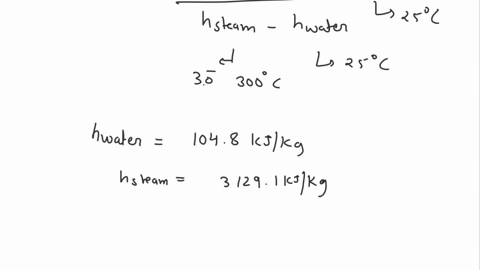 ↳ 25°C
hsteam - hwater
3.0 300°C ↳ 25°C
hwater = 104.8 KJ/Kg
hsteam = 3129.1 KJ/Kg